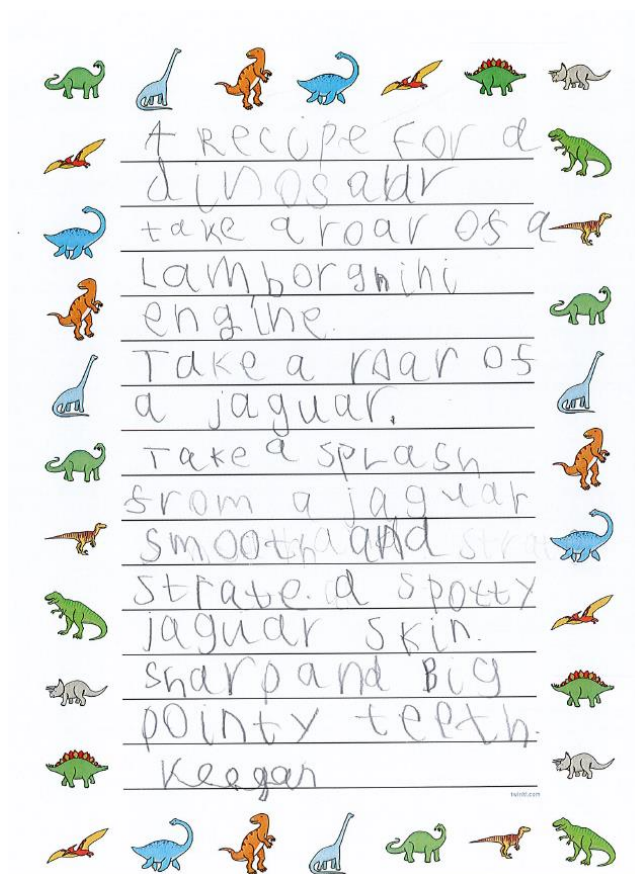 A Recipe For a
dinosaur
take a roar of a
Lamborghini
engine.
Take a roar of
a jaguar.
Take a splash
from a jaguar
smooth and
strate. a spotty
jaguar skin.
sharp and Big
pointy teeth.
Keegan
twinkl.com